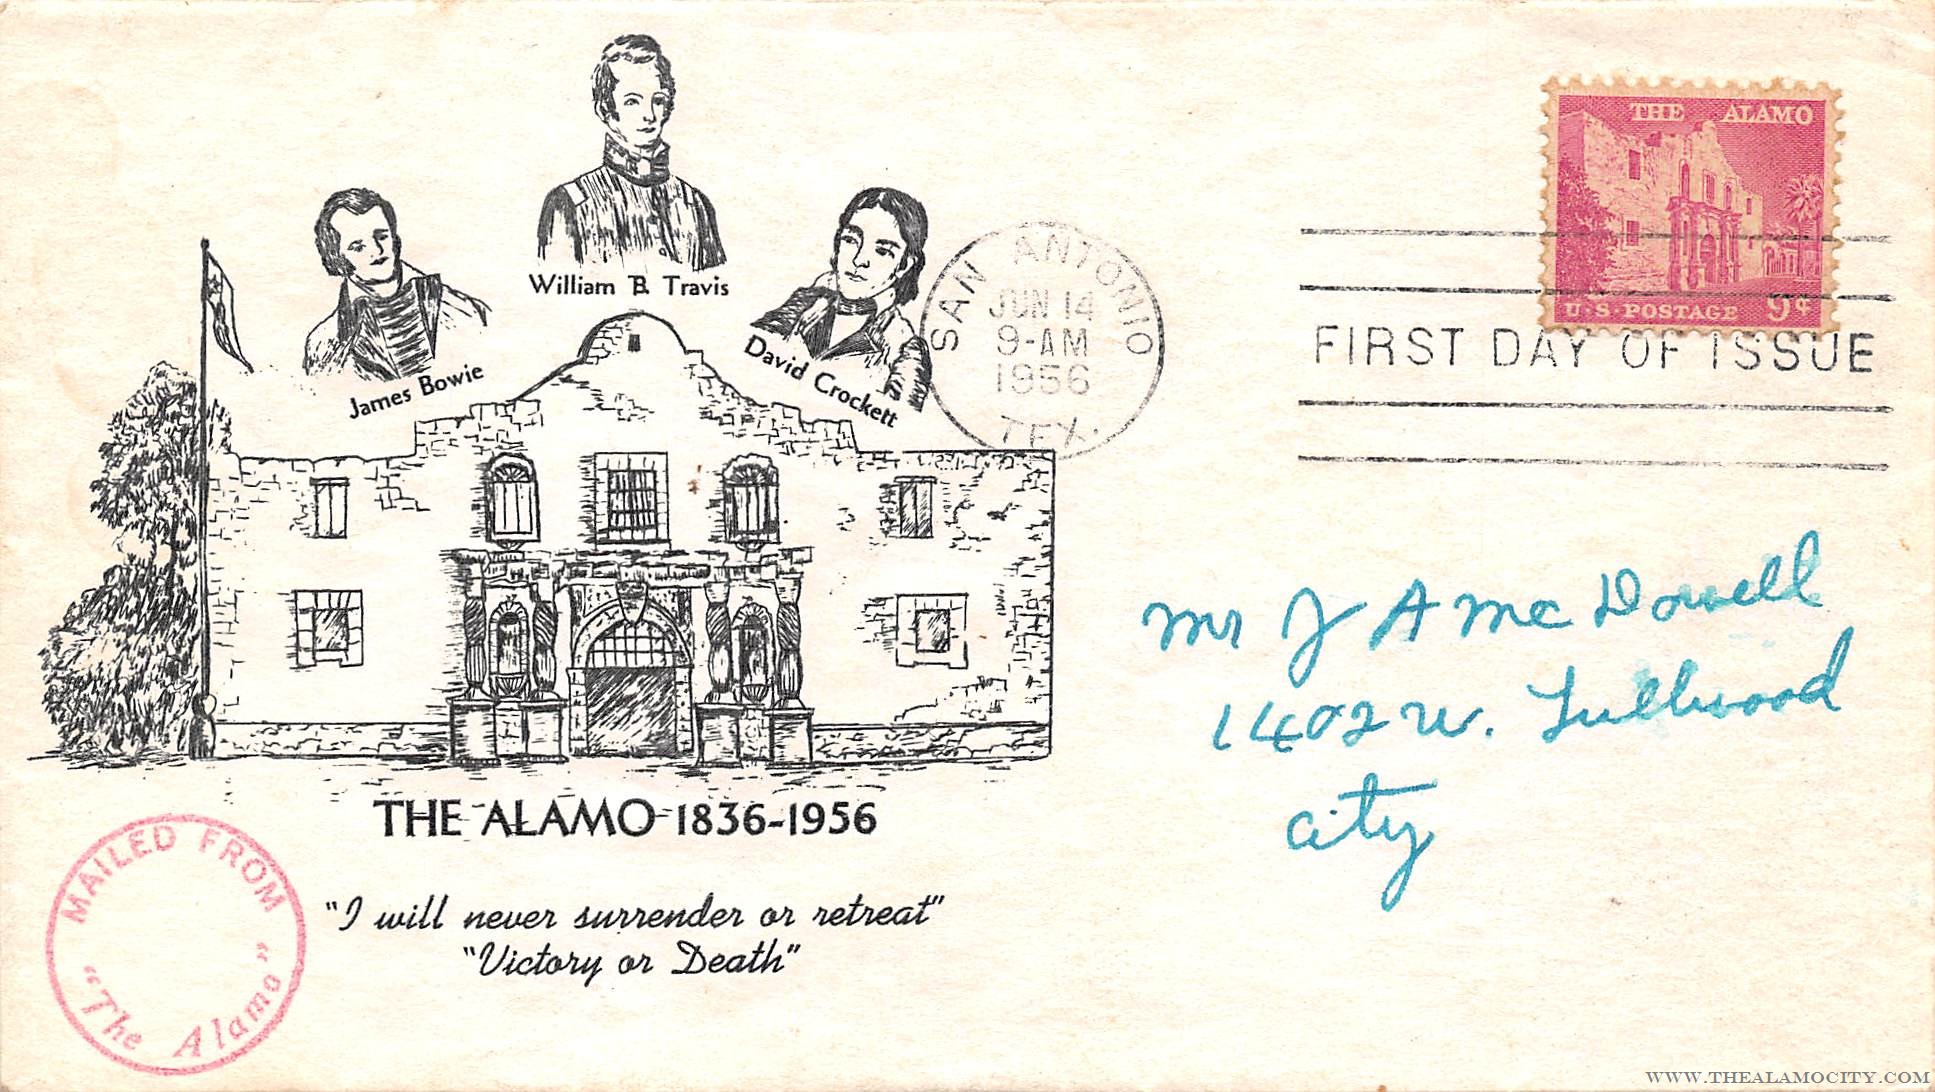 William B. Travis
James Bowie
David Crockett
SAN ANTONIO
JUN 14
9-AM
1956
TEX.
THE ALAMO
U.S. POSTAGE 9¢
FIRST DAY OF ISSUE
Mr J A McDowell
1402 W.
City
THE ALAMO 1836-1956
"I will never surrender or retreat"
"Victory or Death"
MAILED FROM
"The Alamo"
WWW.THEALAMOCITY.COM